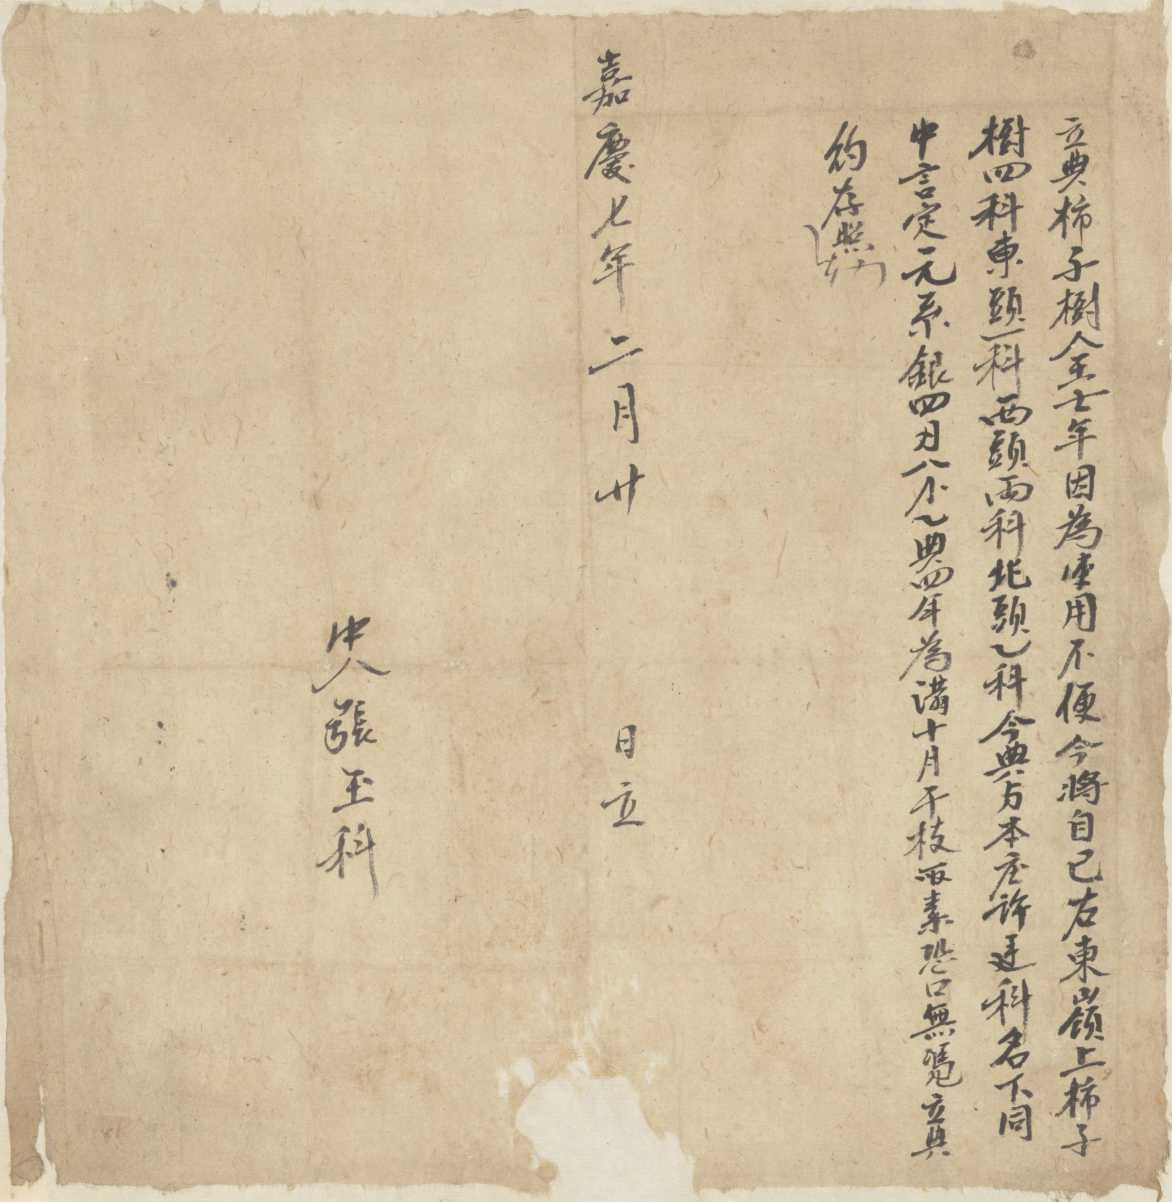 立典柿子樹人全士年因為使用不便今將自己右東嶺上柿子
樹四科東頭一科西頭兩科北頭乀科今典与本庄許廷科名下同
中言定元系銀四刄八小乀典四年為滿十月干枝两素恐口無凴立典
約存照
嘉慶七年二月廿 日立
中人張玉科